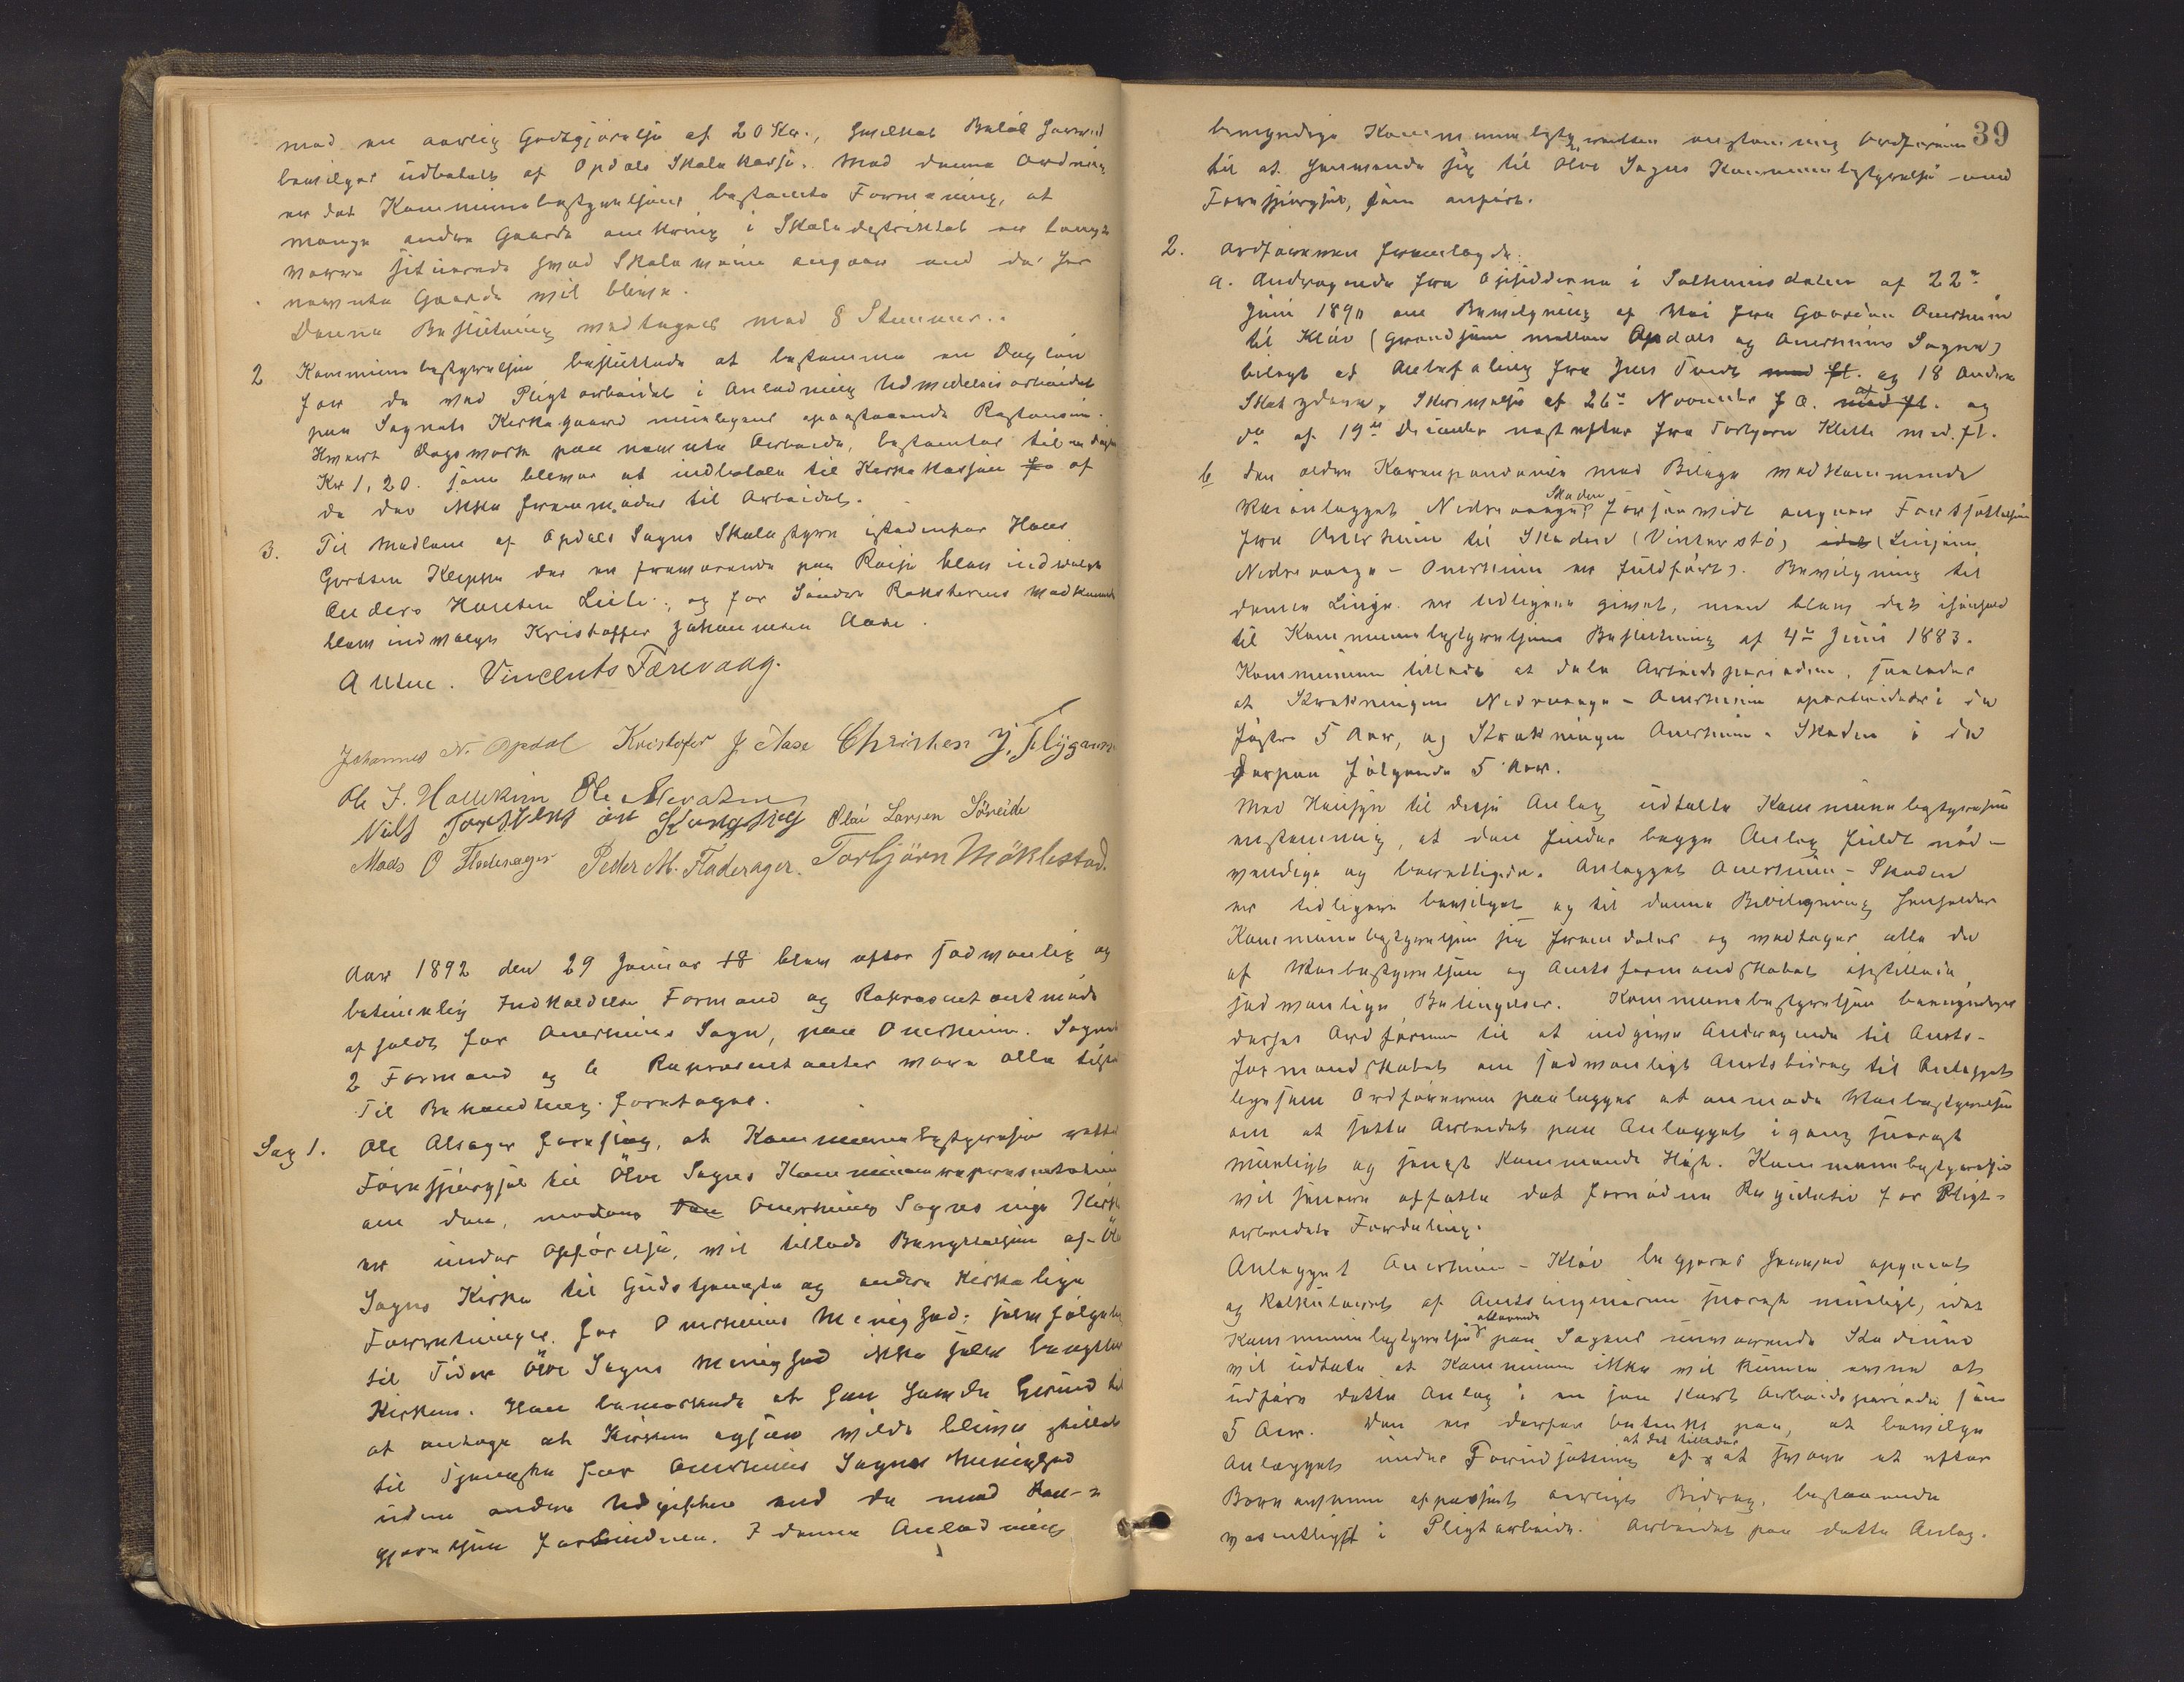 med en aarlig Godtgjørelse af 20 Kr., hvilket Beløb herved
bevilges udbetalt af Opdals Skolekasse. Med denne Ordning
er det Kommunebestyrelsens bestemte Formening, at
mange andre Gaarde omkring i Skoledistriktet er langt
værre situerede hvad Skoleveien angaar end de her
nævnte Gaarde vil blive.
Denne Beslutning vedtages med 8 Stemmer.
2 Kommunebestyrelsen besluttede at bestemme en Dagløn
for de ved Pligtarbeidet i Anledning Udvidelsesarbeidet
paa Sognets Kirkegaard muligens paastaaende Restancer.
Hvert Dagsverk paa nævnte Arbeide, bestemtes til en
Kr 1,20. som bliver at indbetale til Kirkekassen fra af
de der ikke fremmøder til Arbeidet.
3. Til Medlem af Opdals Sogns Skolestyre istedenfor Hans
Gertsen Kleppe der er fraværende paa Reise blev indvalgt
Anders Hansen Lieli, og for Søndre Rokstrens Vedkommende
blev indvalgt Kristoffer Johannesen Aase.
Attene. Vincents Færevaag.
Johannes N. Opdal Kristofer J Aase Christen J. Flygansv
Ole J. Hallekim Ole Nevatne
Nils Torstens øn Olai Larsen Söreide
Mads O Flaterager Peder M. Flaterager. Torbjörn Möklestad.
Aar 1892 den 29 Januar 18 blev efter sædvanlig og
betimelig Indkaldelse Formand og Repræsentantmøde
afholdt for Ønerheims Sogn, paa Onerheim. Sognets
2 Formænd og 6 Repræsentanter vare alle tilstede
Til Behandling foretoges.
Sag 1. Ole Alsager foreslog, at Kommunebestyrelsen rettet
Forespørgsel til Ölve Sogns Kommunerepræsentation
om den, medens den Onerheims Sogns nye Kirke
er under Opførelse, vil tillade Benyttelsen af Öl
Sogns Kirke til Gudstjeneste og andre kirkelige
Forretninger for Onerheims Menighed; selvfølgelig
til Tider Ölve Sogns Menighed ikke selv benytter
Kirken. Han bemærkede at han havde Grund til
at antage at Kirkens eiere vilde blive stillet
til Tjeneste for Onerheims Sogns Menighed
uden andre Udgifter end de med Ren-
gjørelsen forbundne. I denne Anledning
39
bemyndige Kommunebestyrelsen enstemmig Ordføreren
til at henvende sig til Ölve Sogns Kommunebestyrelse med
Forespørgsel, som anført.
2. Ordføreren fremlagde:
a. Andragende fra Opsidderne i Sætheimsdalen af 22de
Juni 1890 om Bevilgning af Vei fra Gaarden Onerheim
til Kløv (Grændsen mellem Opdals og Onerheims Sogne)
bilagt af Anbefaling fra Jens Tvedt med fl. og 18 andre
Skatydere, Skrivelse af 26de November f. A. af med fl. og
do af 19de December næst efter fra Torbjørn Klette med fl.
b den ældre Korrespondance med Bilage vedkommende
Veianlægget Nedrevaage Skaden forsaavidt angaar Fortsættelsen
fra Onerheim til Skaden (Vinterstø) idet (Linjen
Nedrevaage - Onerheim er fuldført). Bevilgning til
denne Linje er tidligere givet, men blev det ihenhold
til Kommunebestyrelsens Beslutning af 4de Juni 1883.
Kommunen tilladt at dele Arbeidsperioden, saaledes
at Strækningen Nedrevaage - Onerheim oparbeidedes i de
første 5 Aar, og Strækningen Onerheim - Skaden i de
derpaa følgende 5 Aar.
Med Hensyn til disse Anlæg udtalte Kommunebestyrelsen
enstemmig, at den finder begge Anlæg fuldt nød-
vendige og berettigede. Anlægget Onerheim - Skaden
er tidligere bevilget og til denne Bevilgning henholder
Kommunebestyrelsen sig fremdeles og vedtager alle de
af Veibestyrelsen og Amtsformandskabet opstillede
sædvanlige Betingelser. Kommunebestyrelsen bemyndiger
derhos Ordføreren til at indgive Andragende til Amts-
formandskabet om sædvanligt Amtsbidrag til Anlægget
ligesom Ordføreren paalægges at anmode Veibestyrelsen
om at sætte Arbeidet paa Anlægget igang snarest
muligt og senest kommende Høst. Kommunebestyrelsen
vil senere affatte det fornødne Regulativ for Pligt-
arbeidets Fordeling.
Anlægget Onerheim - Kløv begjæres opgaaet
og kalkuleret af Amtsingeniøren snarest muligt, idet
Kommunebestyrelsen allerede paa Sagens nuværende Stadium
vil udtale at Kommunen ikke vil kunne evne at
udføre dette Anlæg i en saa kort Arbeidsperiode som
5 Aar. Den er derfor betænkt paa, at bevilge
Anlægget under Forudsætning af at det tillades at svare et efter
Bæreevnen afpasset aarligt Bidrag, bestaaende
væsentligst i Pligtarbeide. Arbeidet paa dette Anlæg.